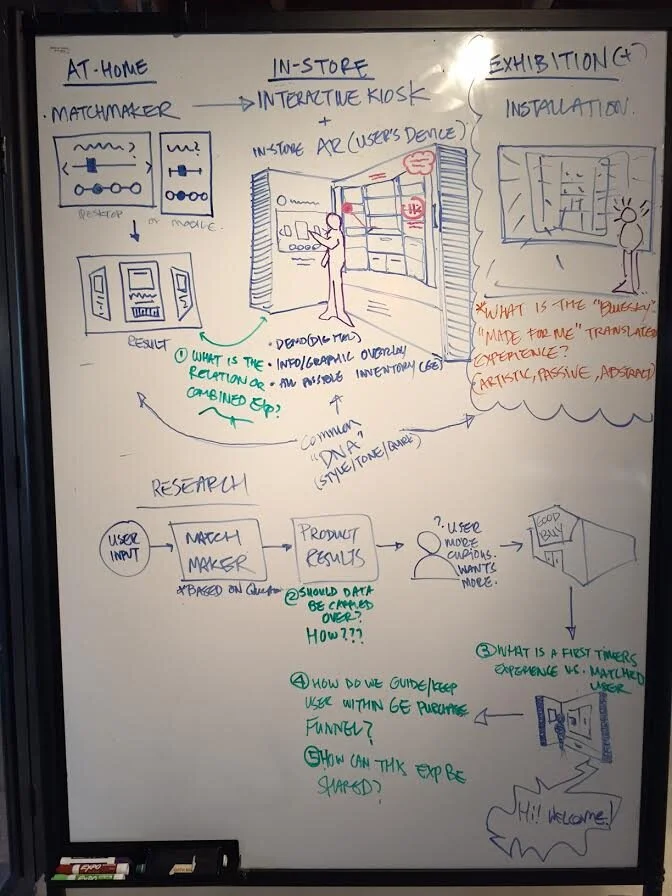 AT-HOME
MATCHMAKER
DESKTOP or MOBILE
RESULT
IN-STORE
INTERACTIVE KIOSK
+
IN-STORE AR (USER'S DEVICE)
Hi
• DEMO (DIGITAL)
• INFO/GRAPHIC OVERLAY
• ALL POSSIBLE INVENTORY (GE)
① WHAT IS THE
RELATION OR
COMBINED EXP?
EXHIBITION(+)
INSTALLATION.
*WHAT IS THE "BLUESKY"
"MADE FOR ME" TRANSLATED
EXPERIENCE?
(ARTISTIC, PASSIVE, ABSTRACT)
COMMON
"DNA"
(STYLE/TONE/QUIRK)
RESEARCH
USER
INPUT
MATCH
MAKER
*BASED ON
PRODUCT
RESULTS
② SHOULD DATA
BE CARRIED
OVER?
HOW???
? USER
MORE
CURIOUS.
WANTS
MORE.
GOOD
BUY
③ WHAT IS A FIRST TIMERS
EXPERIENCE VS. MATCHED
USER
④ HOW DO WE GUIDE/KEEP
USER WITHIN GE PURCHASE
FUNNEL?
⑤ HOW CAN THIS EXP BE
SHARED?
Hi! WELCOME!
EXPO
EXPO